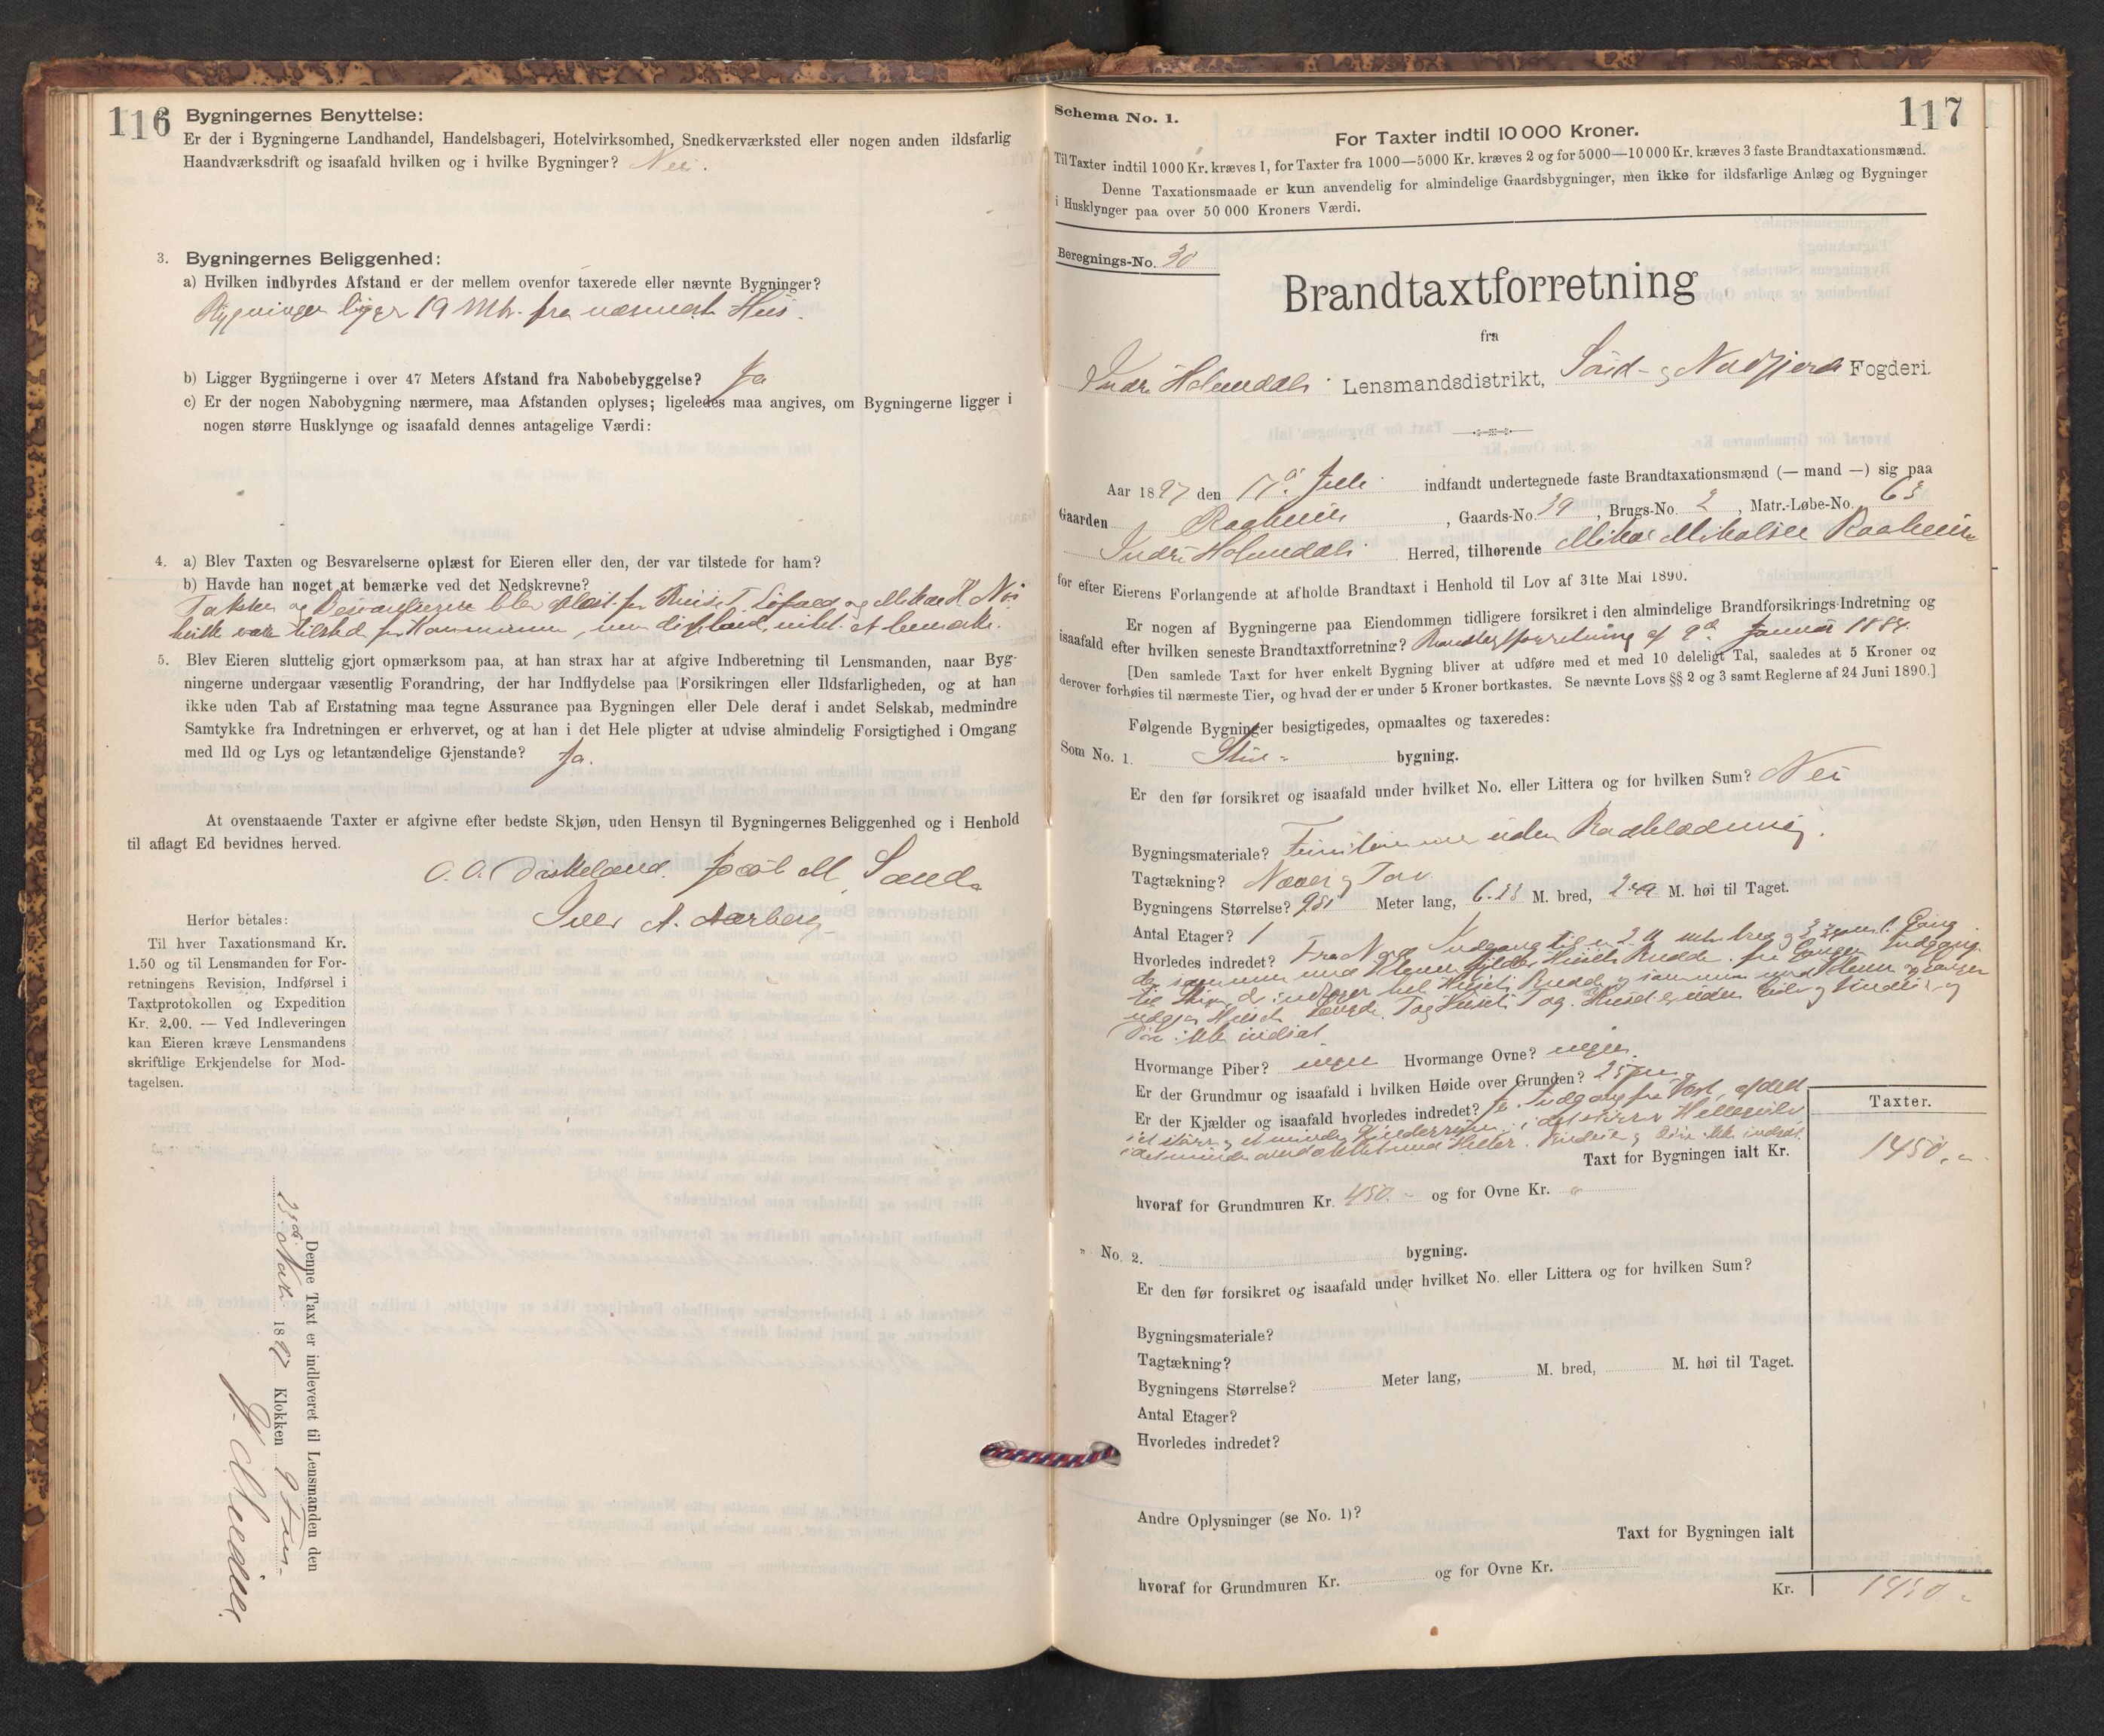 116
Bygningernes Benyttelse:
Er der i Bygningerne Landhandel, Handelsbageri, Hotelvirksomhed, Snedkerværksted eller nogen anden ildsfarlig
Haandværksdrift og isaafald hvilken og i hvilke Bygninger? Nei.
3. Bygningernes Beliggenhed:
a) Hvilken indbyrdes Afstand er der mellem ovenfor taxerede eller nævnte Bygninger?
Bygningen ligger 19 Mtr. fra nærmeste Hus.
b) Ligger Bygningerne i over 47 Meters Afstand fra Nabobebyggelse? Ja
c) Er der nogen Nabobygning nærmere, maa Afstanden oplyses; ligeledes maa angives, om Bygningerne ligger i
nogen større Husklynge og isaafald dennes antagelige Værdi:
4. a) Blev Taxten og Besvarelserne oplæst for Eieren eller den, der var tilstede for ham?
b) Havde han noget at bemærke ved det Nedskrevne?
Taksten og Besvarelserne blev oplæst for
tilsted for Kommunen, intet at bemærke.
5. Blev Eieren sluttelig gjort opmærksom paa, at han strax har at afgive Indberetning til Lensmanden, naar Byg-
ningerne undergaar væsentlig Forandring, der har Indflydelse paa Forsikringen eller Ildsfarligheden, og at han
ikke uden Tab af Erstatning maa tegne Assurance paa Bygningen eller Dele deraf i andet Selskab, medmindre
Samtykke fra Indretningen er erhvervet, og at han i det Hele pligter at udvise almindelig Forsigtighed i Omgang
med Ild og Lys og letantændelige Gjenstande? Ja.
At ovenstaaende Taxter er afgivne efter bedste Skjøn, uden Hensyn til Bygningernes Beliggenhed og i Henhold
til aflagt Ed bevidnes herved.
O. O. Jacob M. Sande
A. Aarberg
Herfor betales:
Til hver Taxationsmand Kr.
1.50 og til Lensmanden for For-
retningens Revision, Indførsel i
Taxtprotokollen og Expedition
Kr. 2.00. — Ved Indleveringen
kan Eieren kræve Lensmandens
skriftlige Erkjendelse for Mod-
tagelsen.
Denne Taxt er indleveret til Lensmanden den
1897 Klokken
117
Schema No. 1.
For Taxter indtil 10 000 Kroner.
Til Taxter indtil 1000 Kr. kræves 1, for Taxter fra 1000—5000 Kr. kræves 2 og for 5000—10 000 Kr. kræves 3 faste Brandtaxationsmænd.
Denne Taxationsmaade er kun anvendelig for almindelige Gaardsbygninger, men ikke for ildsfarlige Anlæg og Bygninger
i Husklynger paa over 50 000 Kroners Værdi.
Beregnings-No. 30
Brandtaxtforretning
fra
Indre Holmedals Lensmandsdistrikt, Sønd- og Nordfjords Fogderi.
Aar 1897 den 17de Juli indfandt undertegnede faste Brandtaxationsmænd (— mand —) sig paa
Gaarden Raaheim, Gaards-No. 39, Brugs-No. 2, Matr.-Løbe-No. 63
Indre Holmedals Herred, tilhørende Mikal Mikalsen Raaheim
for efter Eierens Forlangende at afholde Brandtaxt i Henhold til Lov af 31te Mai 1890.
Er nogen af Bygningerne paa Eiendommen tidligere forsikret i den almindelige Brandforsikrings-Indretning og
isaafald efter hvilken seneste Brandtaxtforretning? Brandtaxtforretning af 9de Januar 1884.
[Den samlede Taxt for hver enkelt Bygning bliver at udføre med et med 10 deleligt Tal, saaledes at 5 Kroner og
derover forhøies til nærmeste Tier, og hvad der er under 5 Kroner bortkastes. Se nævnte Lovs §§ 2 og 3 samt Reglerne af 24 Juni 1890.]
Følgende Bygninger besigtigedes, opmaaltes og taxeredes:
Som No. 1. Stue- bygning.
Er den før forsikret og isaafald under hvilket No. eller Littera og for hvilken Sum? Nei
Bygningsmateriale? uden Bordklædning.
Tagtækning? Næver og Torv
Bygningens Størrelse? Meter lang, M. bred, M. høi til Taget.
Antal Etager? 1
Hvorledes indredet? Fra Nord Indgang til en Gang
Hvormange Piber? ingen Hvormange Ovne? ingen.
Er der Grundmur og isaafald i hvilken Høide over Grunden?
Er der Kjælder og isaafald hvorledes indredet? Ja. Indgang fra Vest, afdelt
Taxter.
Taxt for Bygningen ialt Kr. 1450.-
hvoraf for Grundmuren Kr. 450.- og for Ovne Kr. "
" No. 2. bygning.
Er den før forsikret og isaafald under hvilket No. eller Littera og for hvilken Sum?
Bygningsmateriale?
Tagtækning?
Bygningens Størrelse? Meter lang, M. bred, M. høi til Taget.
Antal Etager?
Hvorledes indredet?
Andre Oplysninger (se No. 1)?
Taxt for Bygningen ialt
hvoraf for Grundmuren Kr. og for Ovne Kr.
Kr. 1450.-